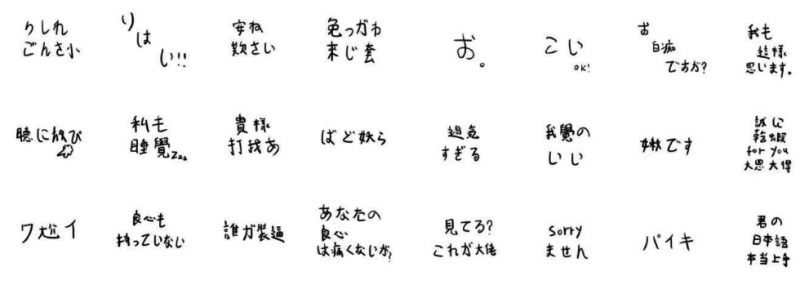 りしれ
ごんさ小
りはい!!
安ね
欺さい
色っがわ
来じ套
お。
こい
OK!
お
自痴
ですか?
我も
這様
思います。
聴に放ひ
私も
睡覺Zzz
貴様
打我あ
ばど妖ら
超危
すぎる
我覺の
いい
嫩です
誠に
乾蝦
for you
大思大得
ワ尬イ
良心も
持っていない
誰が裝逼
あなたの
良心
は痛くないか?
見てる?
これが大佬
sorry
ません
バイキ
君の
日本語
本当上手